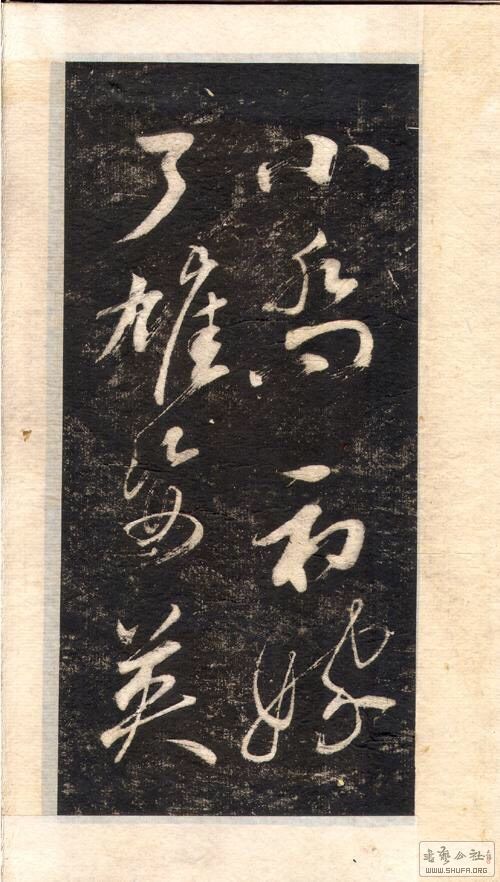 小喬初嫁
了雄姿英
書藝公社
WWW.SHUFA.ORG